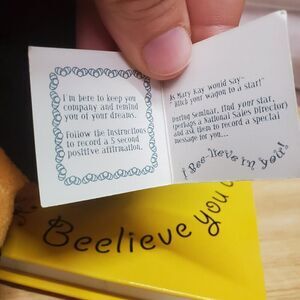 I'm here to keep you
company and remind
you of your dreams.
Follow the instructions
to record a 5 second
positive affirmation.
As Mary Kay would say-
"Hitch your wagon to a star!"
During Seminar, find your star,
(perhaps a National Sales Director)
and ask them to record a special
message for you...
I Bee-lieve in you!
Beelieve you